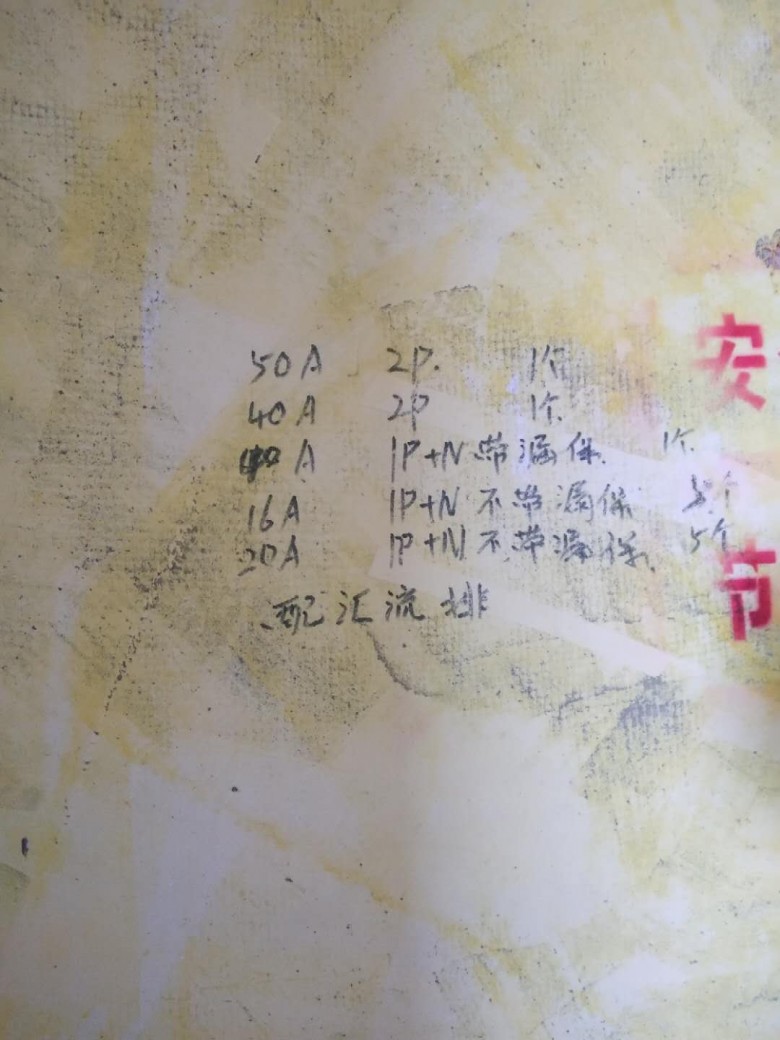 50A 2P. 1个
40A 2P 1个
40A 1P+N 带漏保 1个
16A 1P+N 不带漏保 5个
20A 1P+N 不带漏保 5个
配汇流排
安
节